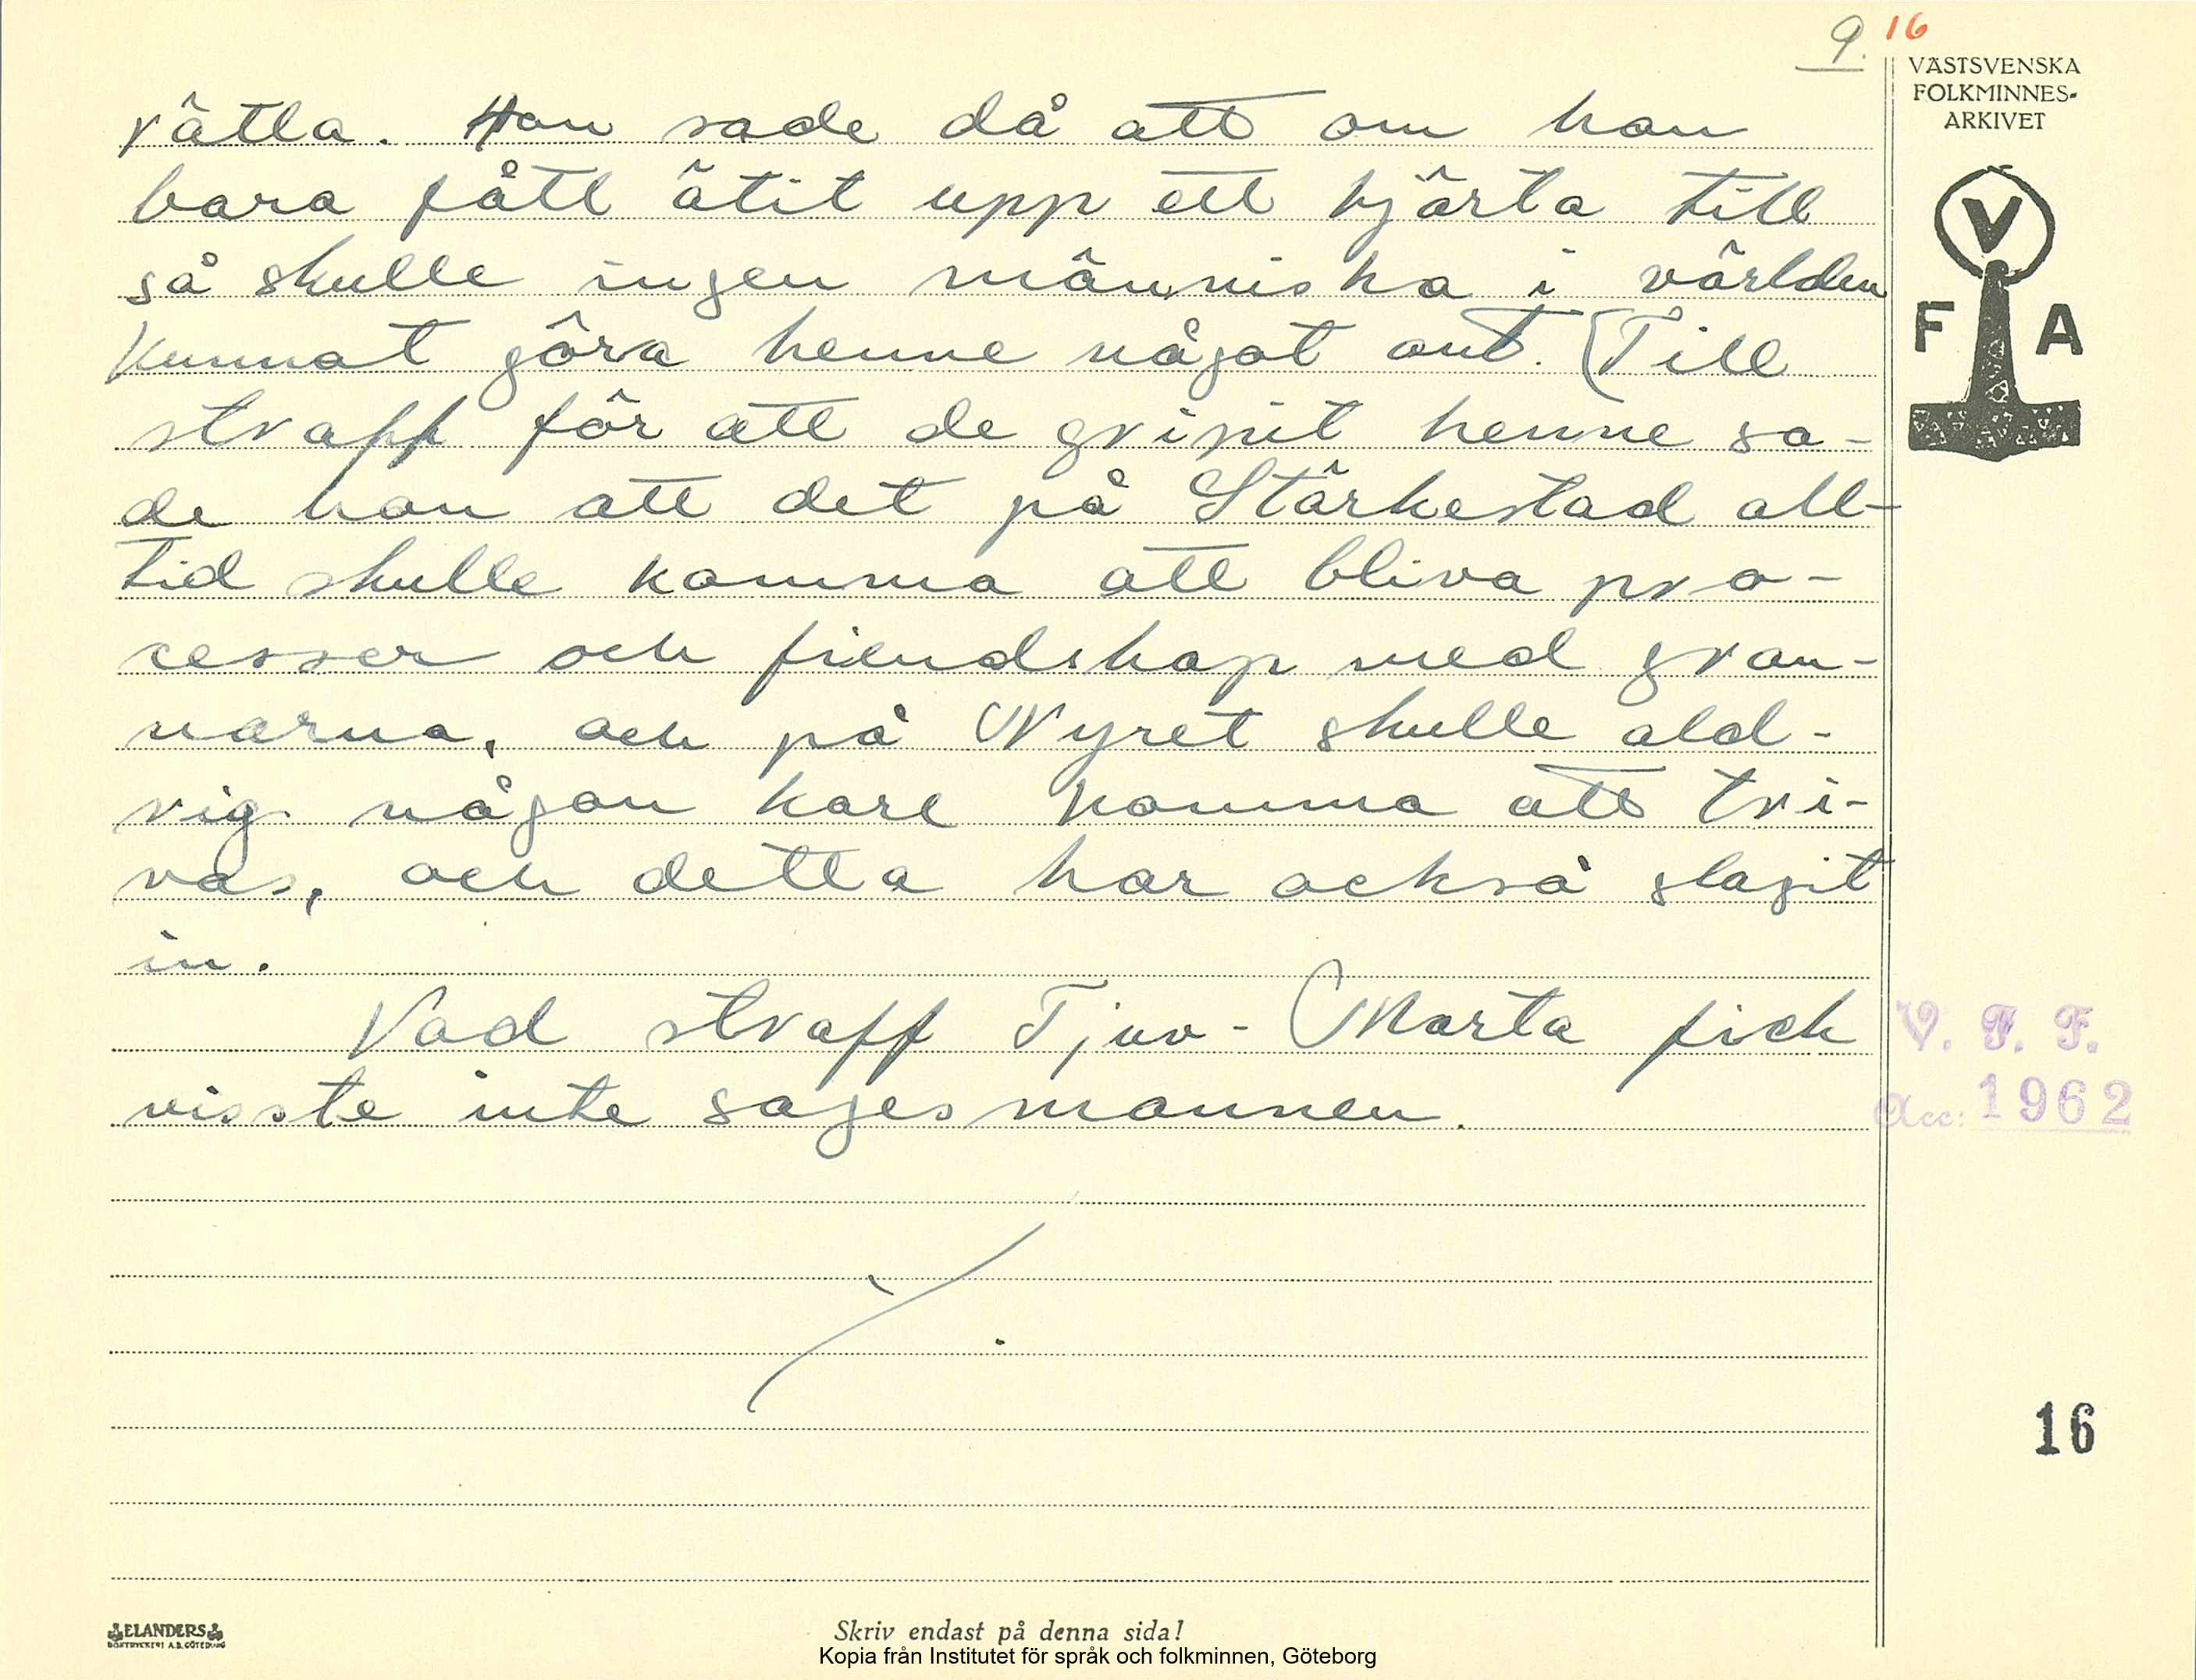 9. 16
VÄSTSVENSKA
FOLKMINNES-
ARKIVET
V
F A
rätta. Hon sade då att om hon
bara fått ätit upp ett hjärta till
så skulle ingen människa i världen
kunnat göra henne något ont. (Till
straff för att de gripit henne sa-
de hon att det på Stärkestad all-
tid skulle komma att bliva pro-
cesser och fiendskap med gran-
narna, och på Nyret skulle ald-
rig någon karl komma att tri-
vas, och detta har också slagit
in.
Vad straff Tjuv-Marta fick
visste inte sagesmannen.
V. F. F.
Acc: 1962
16
ELANDERS
BOKTRYCKERI A.B. GÖTEBORG
Skriv endast på denna sida!
Kopia från Institutet för språk och folkminnen, Göteborg